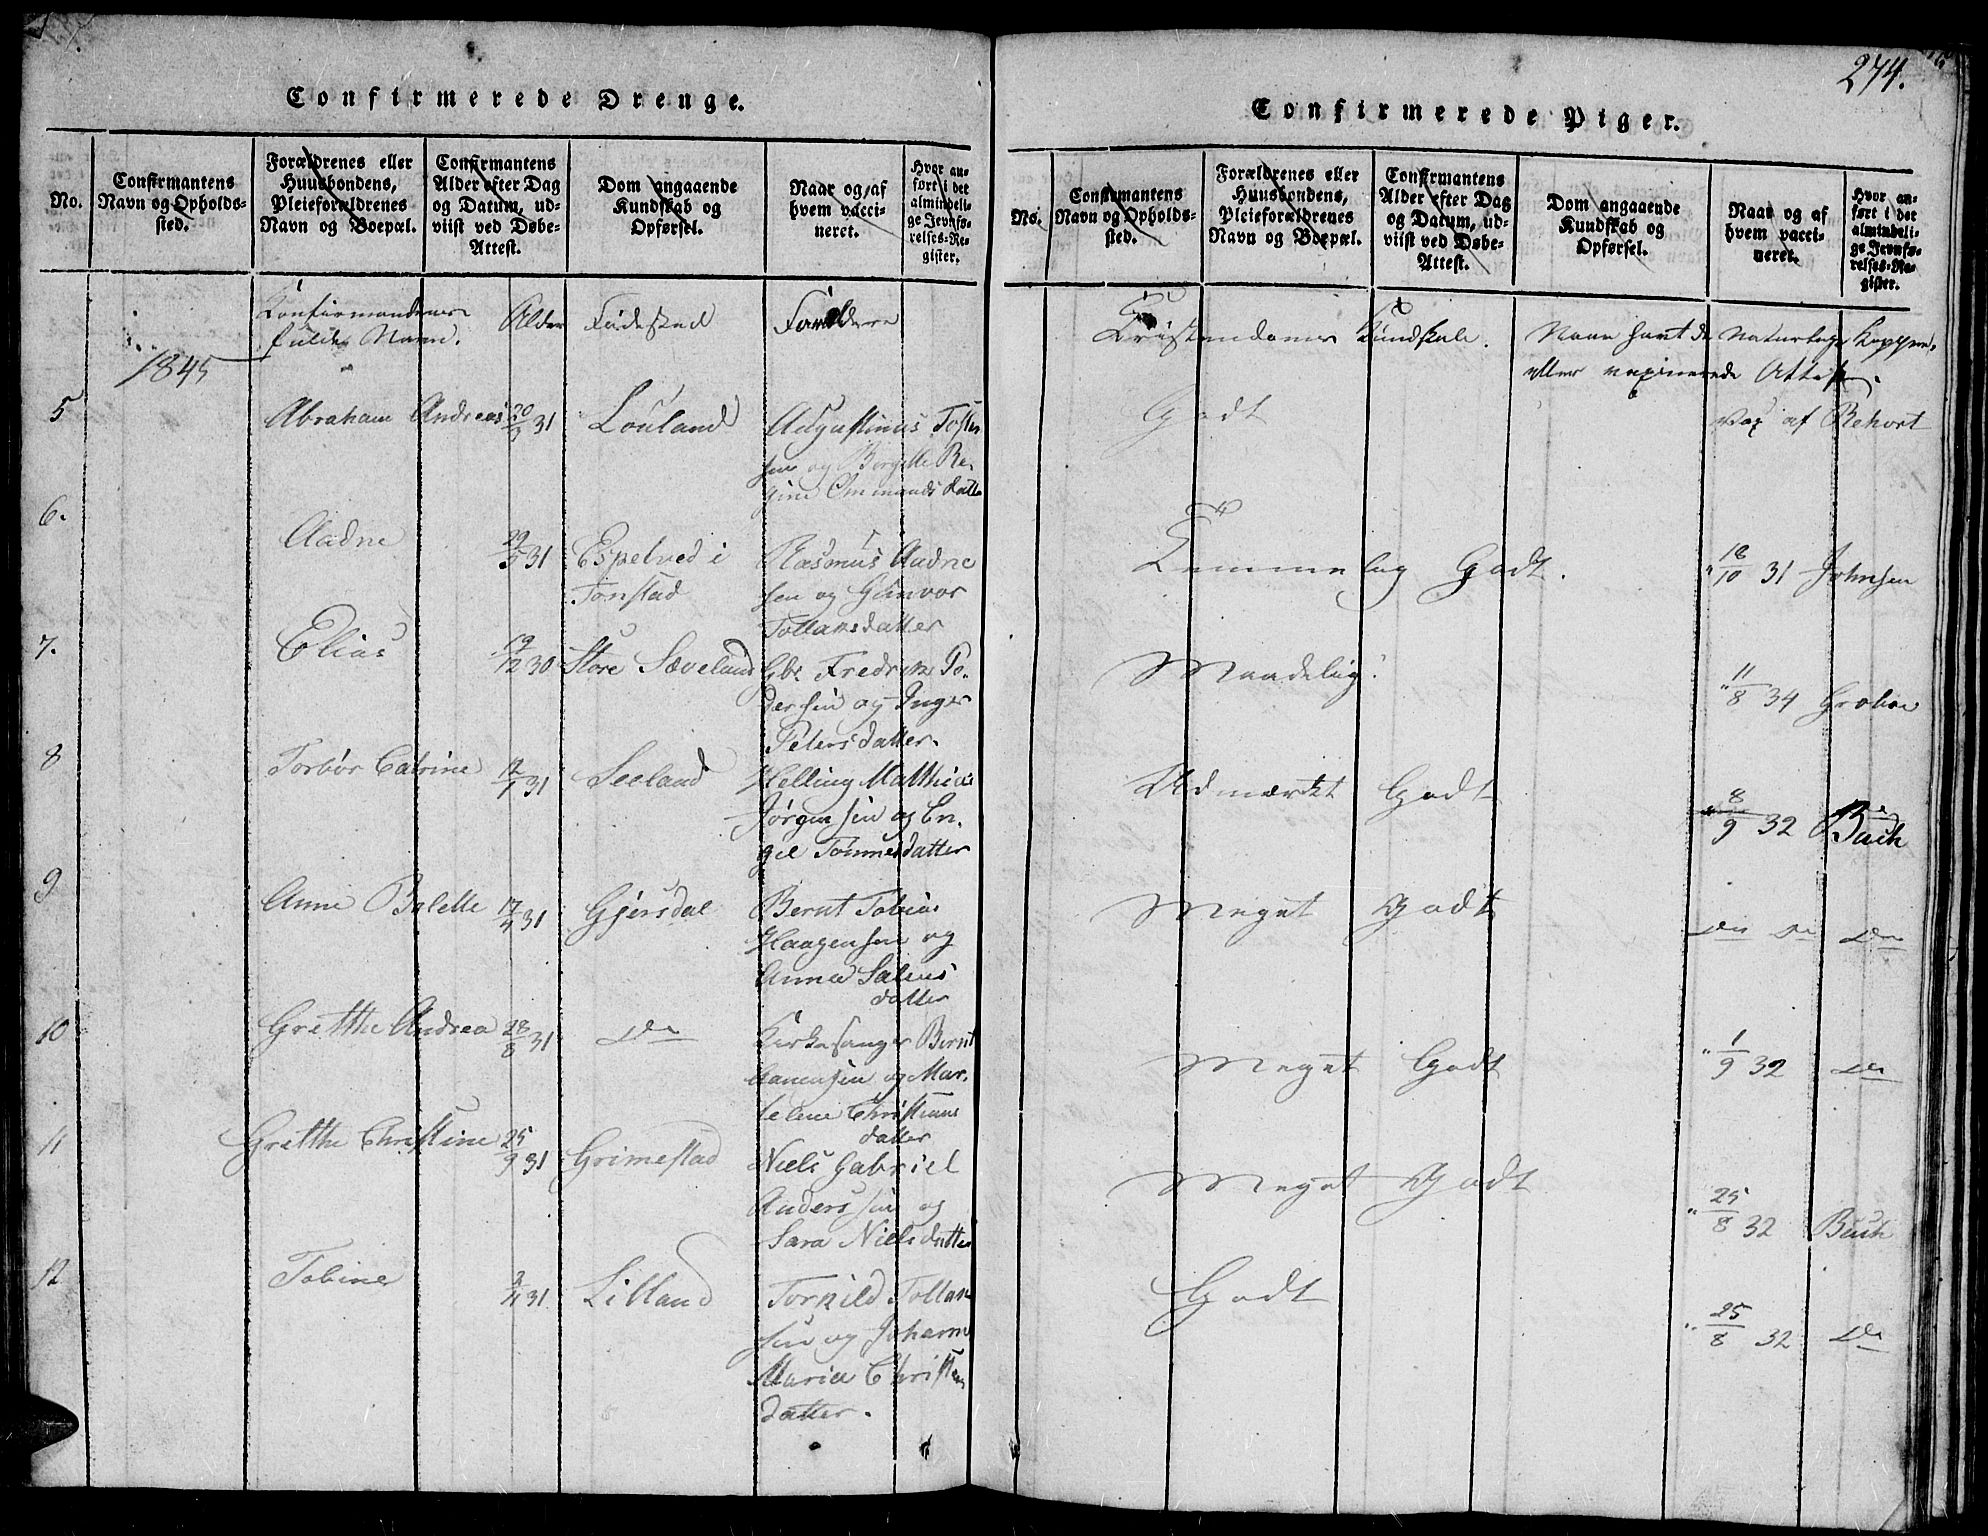 Confirmerede Drenge.
No.
Confirmantens
Navn og Opholds-
sted.
Forældrenes eller
Huusbondens,
Pleieforældrenes
Navn og Boepæl.
Confirmantens
Alder efter Dag
og Datum, ud-
viist ved Døbe-
Attest.
Dom angaaende
Kundskab og
Opførsel.
Naar og af
hvem vacci-
neret.
Hvor an-
ført i det
almindeli-
ge Jevnfø-
relses-Re-
gister.
Konfirmandernes
fulde Navn.
Alder
Fødested
Forældrene
1845
5
Abraham Andreas
20/3 31
Louland
Augustinus Tosten
sen og Borgille Re-
gine Ommunds datter
6.
Aadne
29/5 31
Espetved i
Tonstad
Rasmus Aadne
sen og Gunvor
Tollaksdatter
7.
Elias
19/12 30
Store Sæveland
Gbr Fredrik Pe-
dersen og Inger
Petersdatter.
8
Torbør Catrine
12/1 31
Seeland
Helling Matthias
Jørgensen og En-
gel Tønnesdatter
9
Anne Bolette
17/4 31
Gjersdal
Bernt Tobias
Haagensen og
Anne Salves
datter
10
Grethe Andrea
28/8 31
Do
Kirkesanger Bernt
Aanensen og Mar-
telene Christians
datter
11
Grethe Christine
25/9 31
Grimestad
Niels Gabriel
Anderssen og
Sara Nielsdatter
12
Tobine
3/11 31
Lilland
Torkild Tollak
sen og Johanne
Marie Christens
datter.
274.
Confirmerede Piger.
No.
Confirmantens
Navn og Opholds-
sted.
Forældrenes eller
Huusbondens,
Pleieforældrenes
Navn og Boepæl.
Confirmantens
Alder efter Dag
og Datum, ud-
viist ved Døbe-
Attest.
Dom angaaende
Kundskab og
Opførsel.
Naar og af
hvem vacci-
neret.
Hvor an-
ført i det
almindeli-
ge Jevnfø-
relses-Re-
gister.
Kristendoms Kundskab.
Naar havt de naturlige Kopper,
eller vaxinerede Attest.
Godt
Vax af Rehort
Temmelig Godt.
" 18/10 31 Johnsen
Maadelig.
" 11/8 34 Grobøe
Udmærket Godt
" 8/9 32 Buch
Meget Godt
Do Do Do
Meget Godt
" 1/9 32 Do
Meget Godt
" 25/8 32 Buch
Godt
" 25/8 32 Do